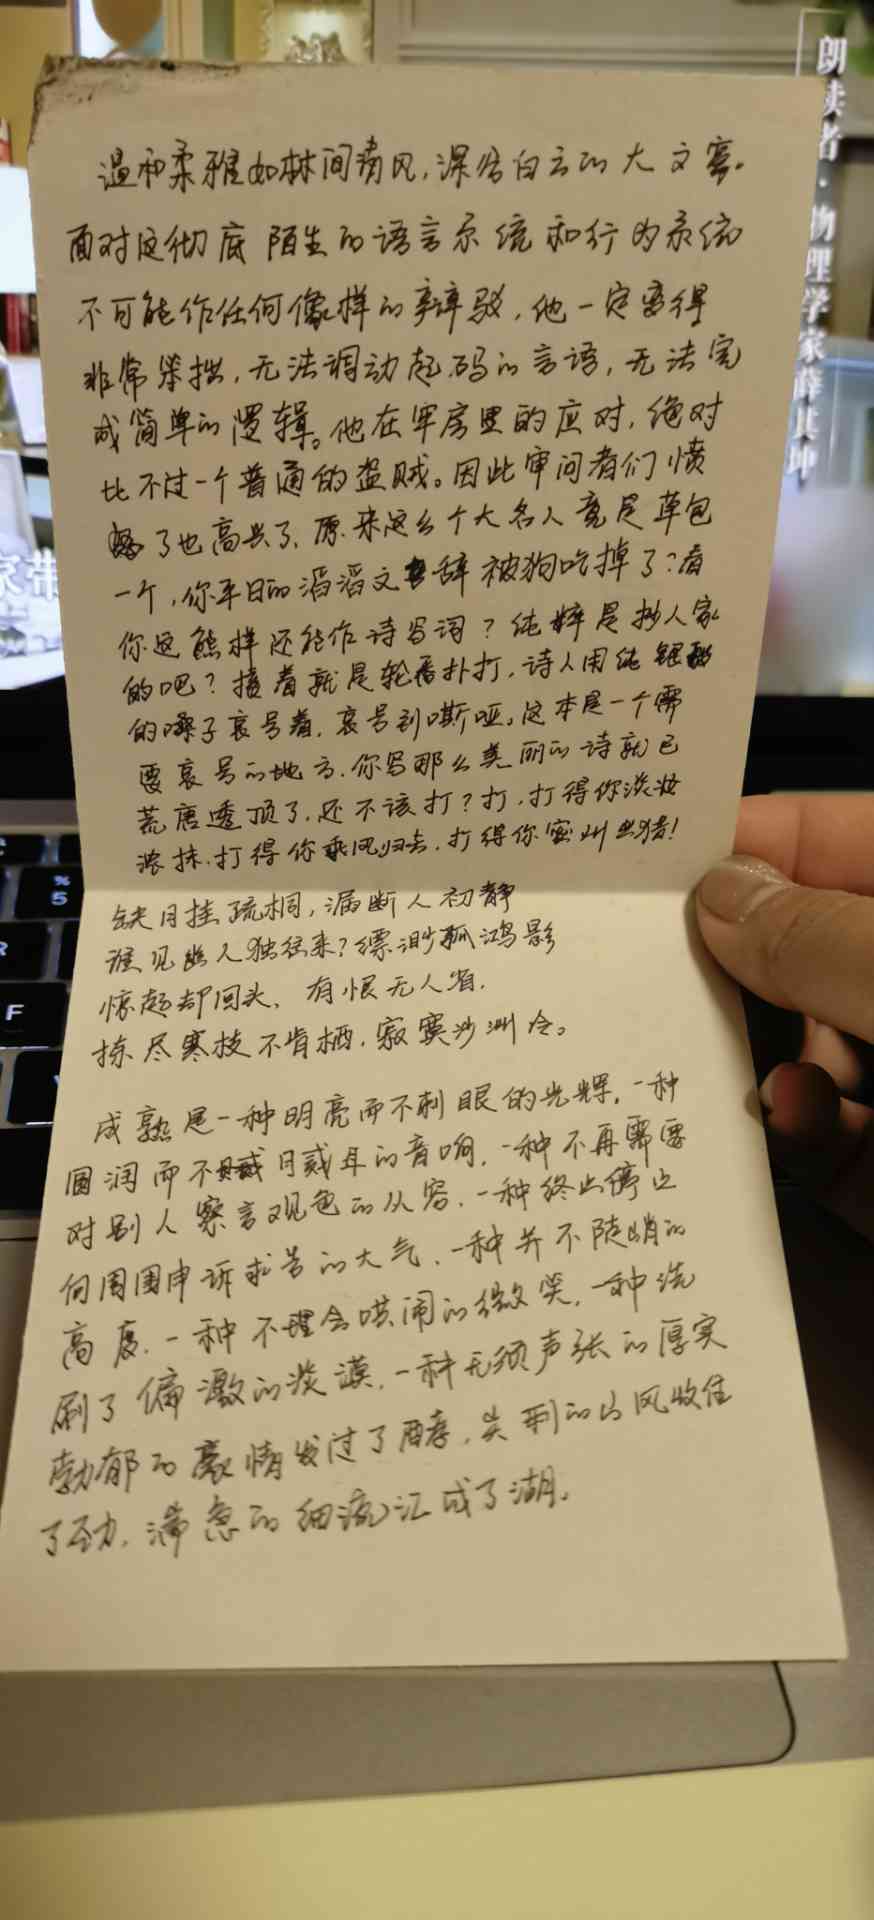 温和柔雅如林间清风，深谷白云的大文豪。
面对这彻底陌生的语言系统和行为系统
不可能作任何像样的辩驳，他一定变得
非常笨拙，无法调动起码的言语，无法完
成简单的逻辑。他在牢房里的应对，绝对
比不过一个普通的盗贼。因此审问者们愤
怒了也高兴了，原来这么个大名人竟是草包
一个，你平日的滔滔文辞被狗吃掉了？看
你这熊样还能作诗写词？纯粹是抄人家
的吧？接着就是轮番扑打，诗人用纯
的嗓子哀号着，哀号到嘶哑。这本是一个需
要哀号的地方，你写那么美丽的诗就已
荒唐透顶了，还不该打？打，打得你淡妆
浓抹，打得你乘风归去，打得你密州出猎！
缺月挂疏桐，漏断人初静
谁见幽人独往来？缥渺孤鸿影
惊起却回头，有恨无人省，
拣尽寒枝不肯栖，寂寞沙洲冷。
成熟是一种明亮而不刺眼的光辉，一种
圆润而不腻耳的音响，一种不再需要
对别人察言观色的从容，一种终止停止
向周围申诉求告的大气，一种并不陡峭的
高度，一种不理会哄闹的微笑，一种洗
刷了偏激的淡漠，一种无须声张的厚实
勃郁的豪情发过了酵，尖利的山风收住
了劲，湍急的细流汇成了湖。
朗读者·物理学家薛其坤
家带
%
5
R
F